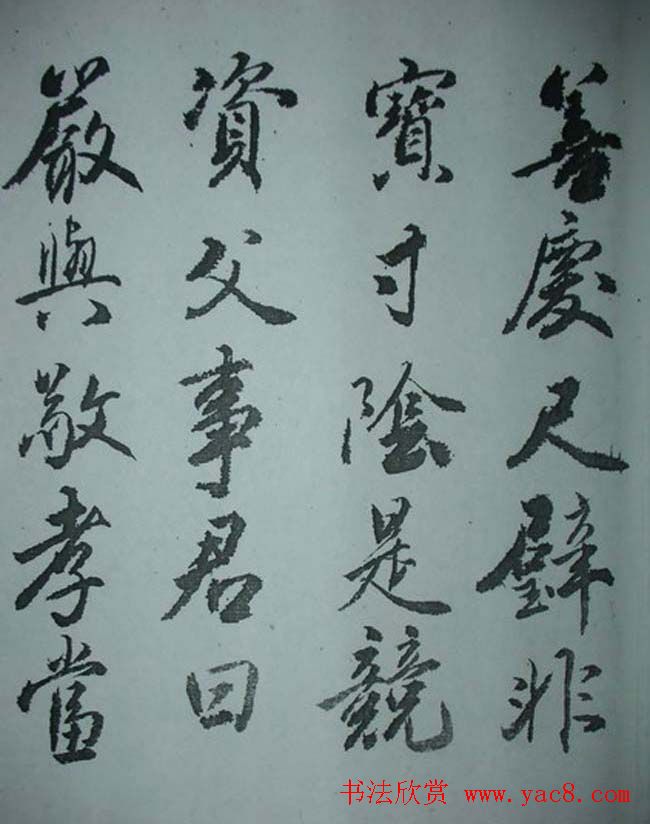 善慶尺璧非
寶寸陰是競
資父事君曰
嚴與敬孝當
书法欣赏 www.yac8.com